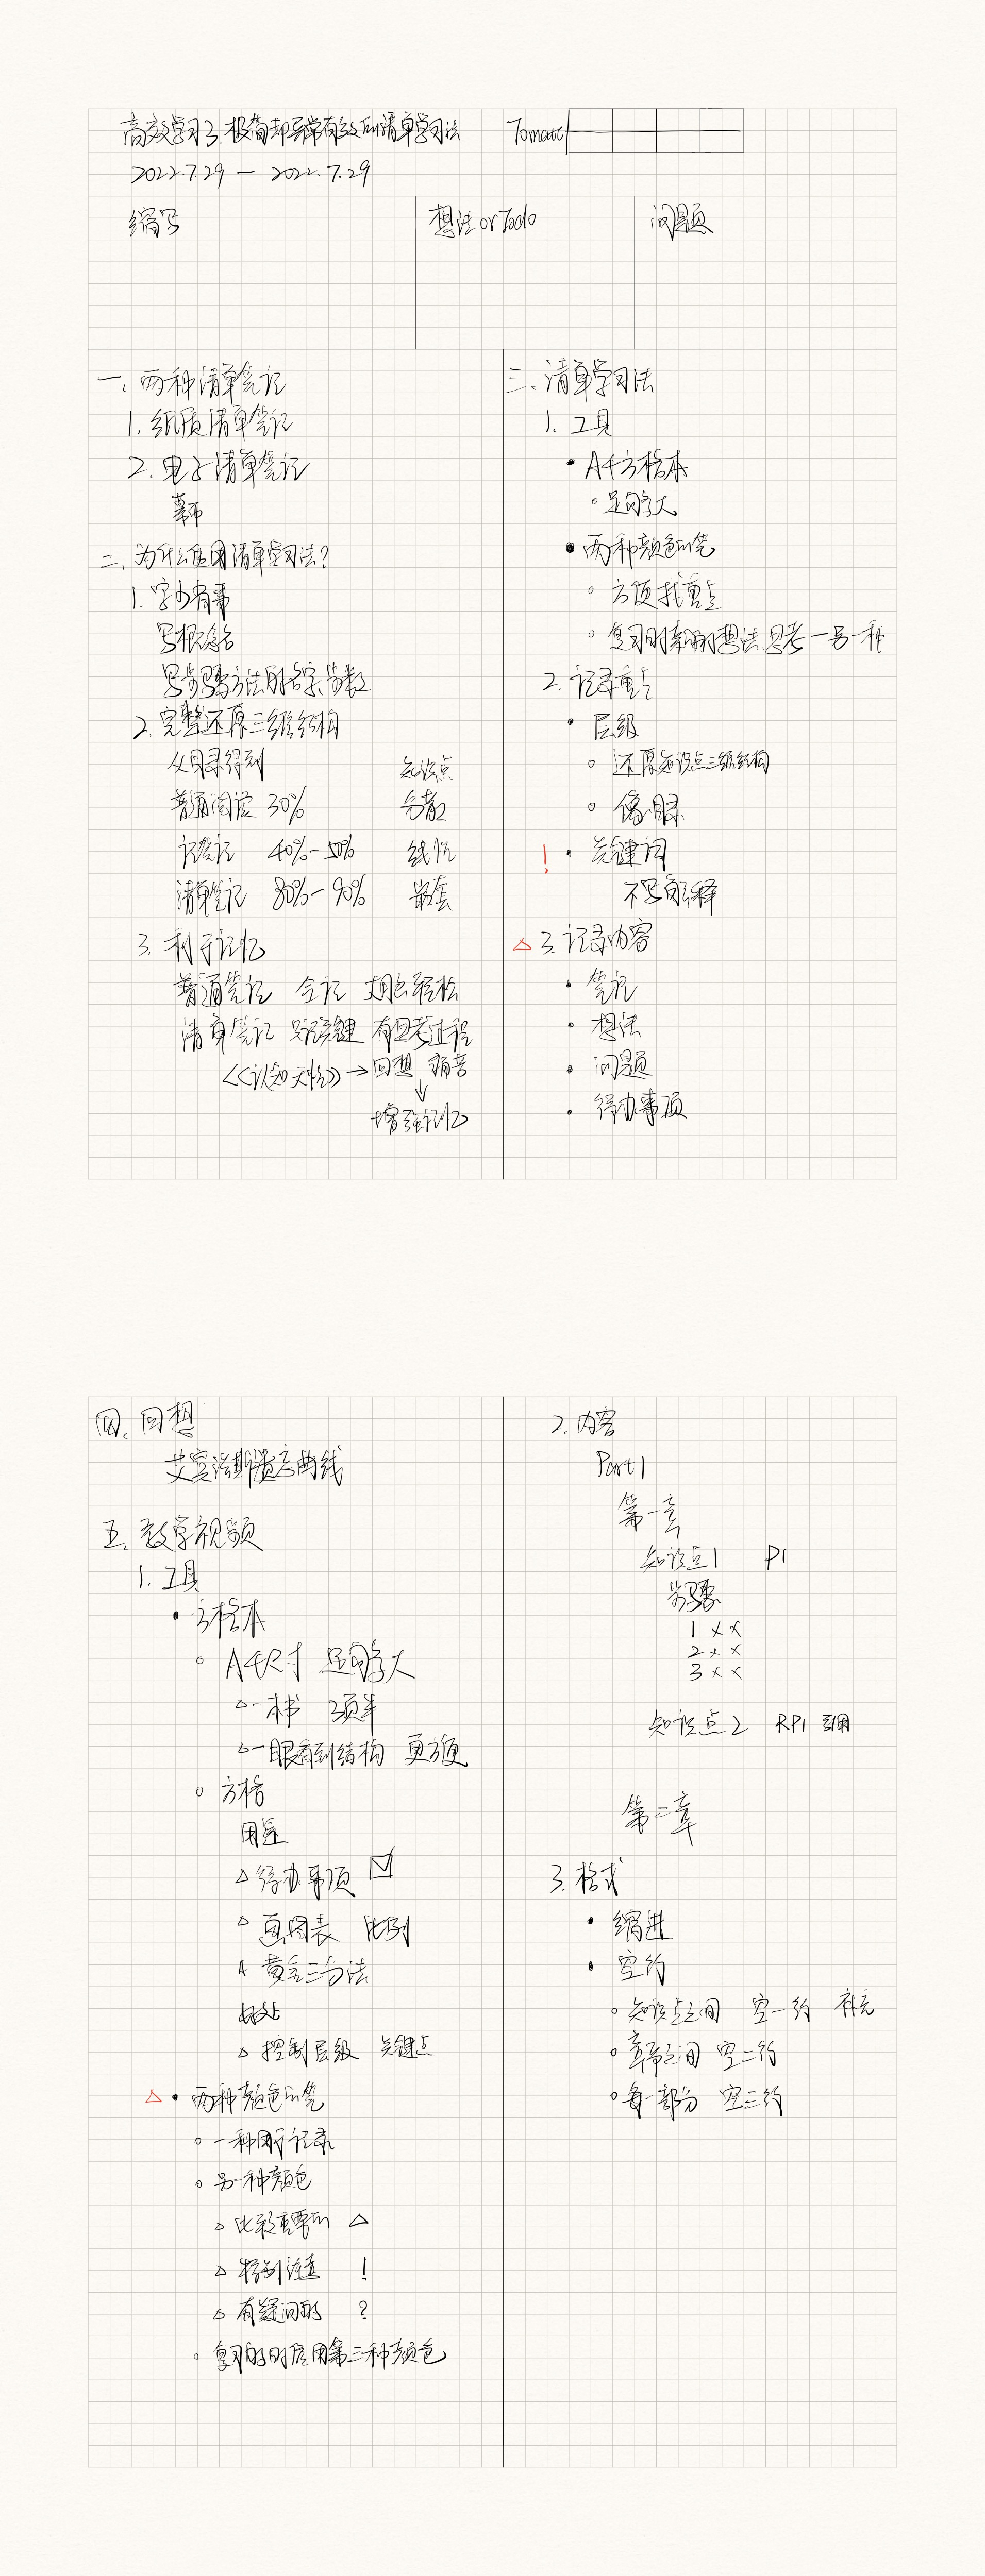 高效学习3.极简却异常有效的清单学习法
Tomato
2022.7.29 — 2022.7.29
缩写
想法orTodo
问题
一、两种清单笔记
1. 纸质清单笔记
2. 电子清单笔记
幕布
二、为什么使用清单学习法？
1. 字少省事
写概念名
写步骤方法的名字、步数
2. 完整还原三维结构
从目录得到 知识点
普通阅读 30% 分散
记笔记 40%-50% 线性
清单笔记 80%-90% 嵌套
3. 利于记忆
普通笔记 全记 大脑轻松
清单笔记 只记关键 有思考过程
《认知天性》→回想 痛苦
↓
增强记忆
三、清单学习法
1. 工具
• A4方格本
◦ 足够大
• 两种颜色的笔
◦ 方便找重点
◦ 复习时新的想法、思考—另一种
2. 记录重点
• 层级
◦ 还原知识点三维结构
◦ 像目录
! • 关键词
不写解释
△ 3. 记录内容
• 笔记
• 想法
• 问题
• 待办事项
四、回想
艾宾浩斯遗忘曲线
五、教学视频
1. 工具
• 方格本
◦ A4尺寸 足够大
△ 一本书 3页半
△ 一眼看到结构 更方便
◦ 方格
用途
△ 待办事项 ☑
△ 画图表 比例
△ 黄金三分法
好处
△ 控制层级 关键点
△ • 两种颜色的笔
◦ 一种用于记录
◦ 另一种颜色
△ 比较重要的 △
△ 特别注意 !
△ 有疑问的 ?
◦ 复习的时候用第三种颜色
2. 内容
Part1
第一章
知识点1 P1
步骤
1 ××
2 ××
3 ××
知识点2 RP1 引用
第二章
3. 格式
• 缩进
• 空行
◦ 知识点之间 空一行 补充
◦ 章节之间 空二行
◦ 每一部分 空三行